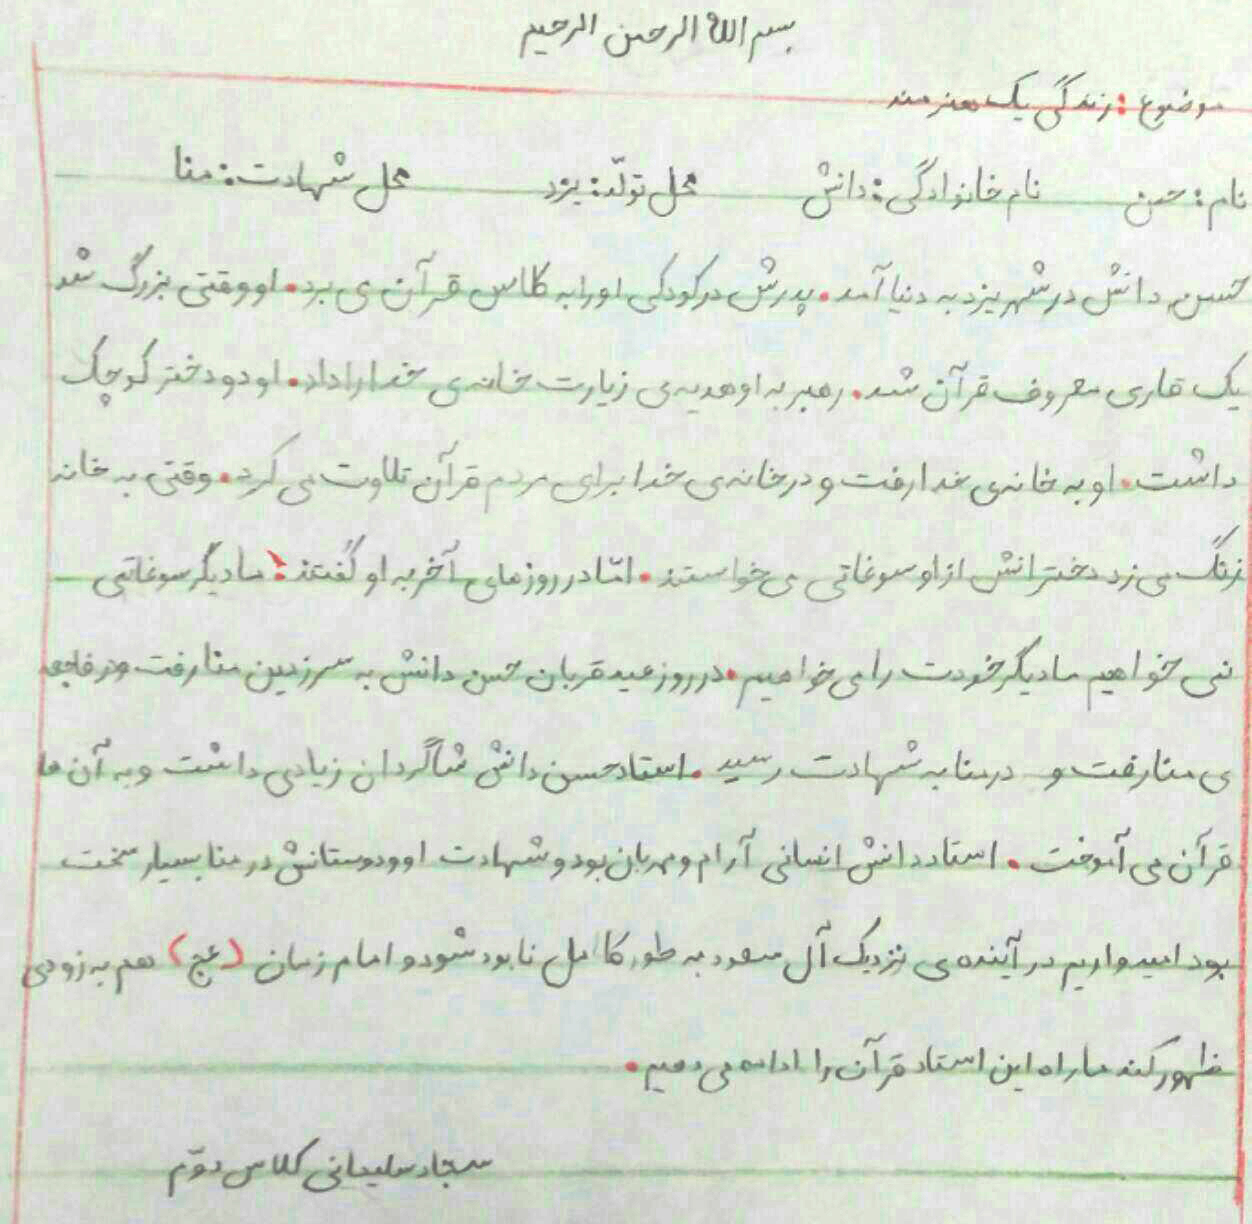 بسم الله الرحمن الرحیم
موضوع: زندگی یک هنرمند
نام: حسن نام خانوادگی: دانش محل تولّد: یزد محل شهادت: منا
حسن دانش در شهر یزد به دنیا آمد. پدرش در کودکی او را به کلاس قرآن می برد. او وقتی بزرگ شد
یک قاری معروف قرآن شد. رهبر به او هدیه ی زیارت خانه ی خدا را داد. او دو دختر کوچک
داشت. او به خانه ی خدا رفت و در خانه ی خدا برای مردم قرآن تلاوت می کرد. وقتی به خانه
زنگ می زد دخترانش از او سوغاتی می خواستند. امّا در روز های آخر به او گفتند: ما دیگر سوغاتی
نمی خواهیم ما دیگر خودت را می خواهیم. در روز عید قربان حسن دانش به سرزمین منا رفت و در فاجعه
ی منا رفت و در منا به شهادت رسید. استاد حسن دانش شاگردان زیادی داشت و به آن ها
قرآن می آموخت. استاد دانش انسانی آرام و مهربان بود و شهادت او و دوستانش در منا بسیار سخت
بود امیدواریم در آینده ی نزدیک آل سعود به طور کامل نابود شود و امام زمان (عج) هم به زودی
ظهور کند ما راه این استاد قرآن را ادامه می دهیم.
سجاد سلیمانی کلاس دوّم